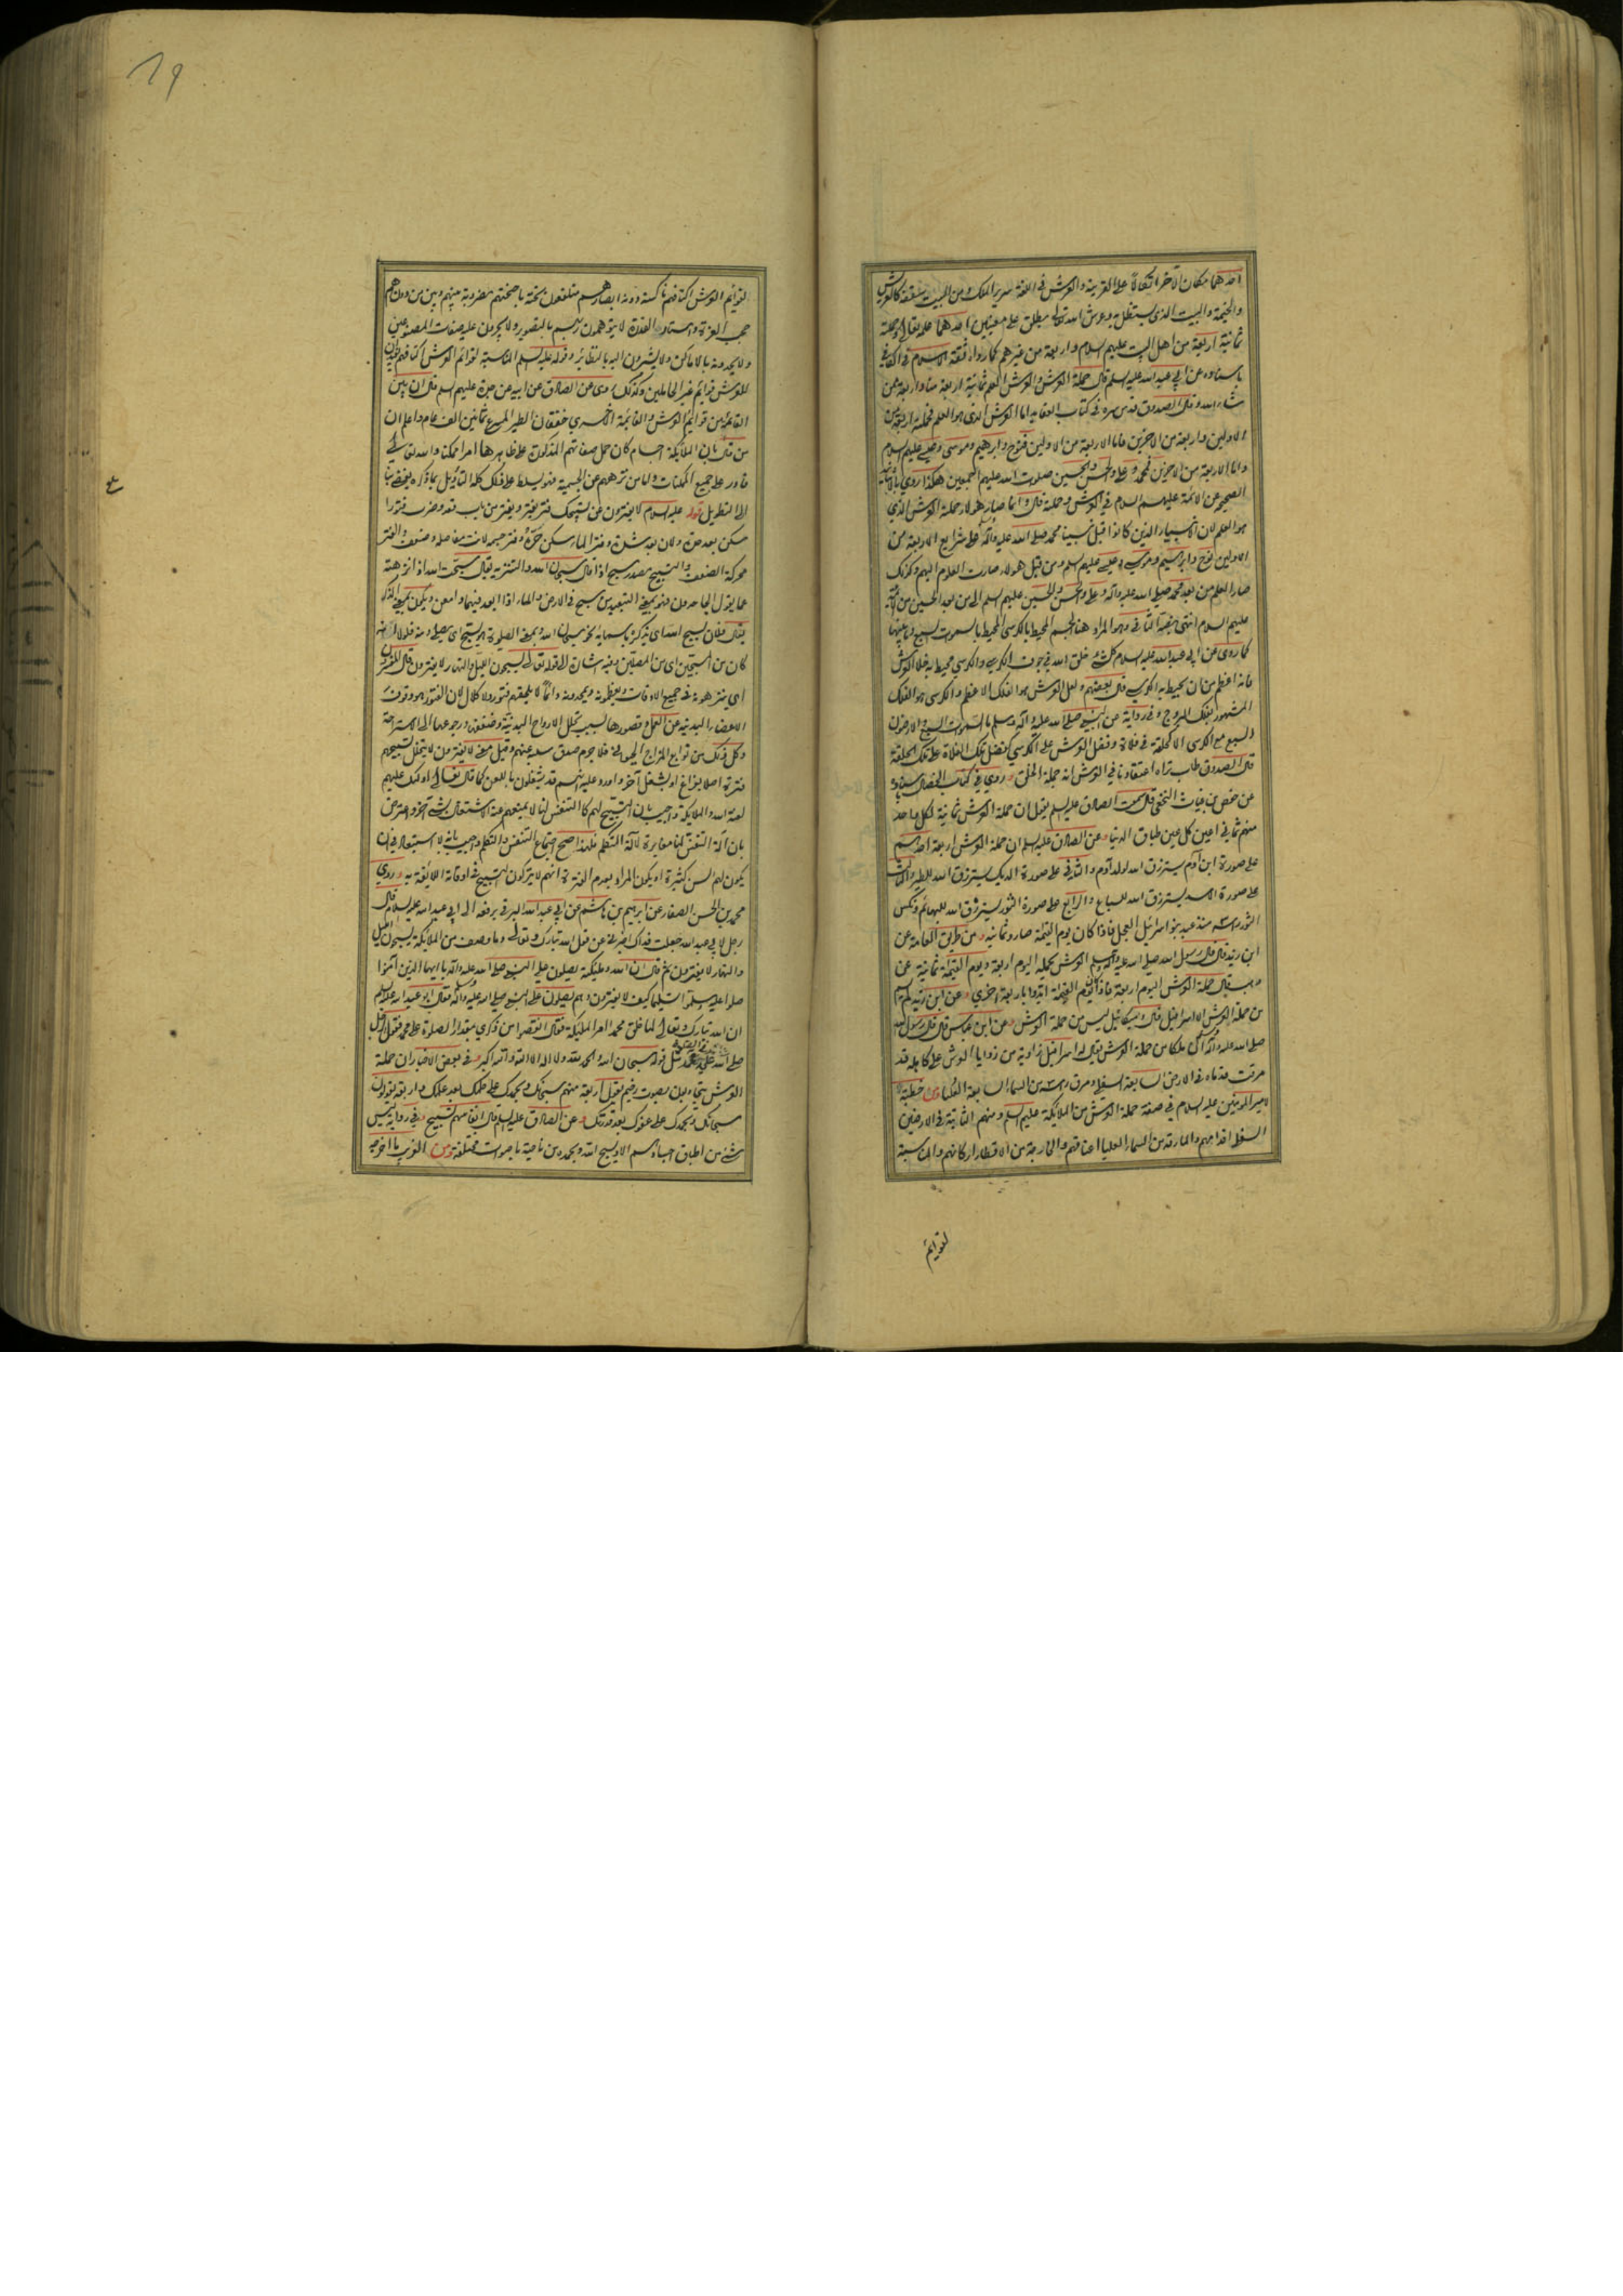 احدهما مكان الآخر اتكالاً على القرينة والعرش فى اللغة سرير الملك ومن البيت سقفه كالعريش
والخيمة والبيت الذى يستظل به وعرش الله تعالى يطلق على معنيين احدهما علم يقال وحملة
ثمانية اربعة من اهل البيت عليهم السلام واربعة من غيرهم كما رواه ثقة الاسلام فى الكافى
باسناده عن ابي عبد الله عليه السلم قال حملة العرش والعرش العلم ثمانية اربعة منا واربعة ممن
شاء الله وقال الصدوق قدس سره فى كتاب العقايد اما العرش الذى هو العلم فحملته اربعة من
الاولين واربعة من الاخرين فاما الاربعة من الاولين فنوح وابرهيم وموسى وعيسى عليهم السلام
واما الاربعة من الاخرين فمحمد وعلى والحسن والحسين صلوات الله عليهم اجمعين هكذا روي بالاسانيد
الصحيحه عن الائمة عليهم السلام في العرش وحملته قال وانما صار هؤلاء حملة العرش الذي
هو العلم لان الانبياء الذين كانوا قبل نبينا محمد صلى الله عليه وآله على شرايع الاربعة من
الاولين نوح وابراهيم وموسى وعيسى عليهم السلم ومن قبل هؤلاء صارت العلوم اليهم وكذلك
صار العلم من بعد محمد صلى الله عليه وآله وعلى والحسن والحسين عليهم السلم الى من بعد الحسين من الائمة
عليهم السلام انتهى وثانى وهو المراد هنا الجسم المحيط بالكرسى المحيط بالسموت السبع وما بينها
كما روى عن ابي عبد الله عليه السلام كل شئ خلق الله في جوف الكرسي والكرسي محيط به خلا العرش
فانه اعظم من ان يحيط به الكرسي قال بعضهم ولعل العرش هو الفلك الاعظم والكرسى هو الفلك
المشهور بفلك البروج وفى رواية عن النبي صلى الله عليه وآله وسلم ما السموت السبع والارضون
السبع مع الكرسى الا كحلقة في فلاة وفضل العرش على الكرسي كفضل تلك الفلاة على تلك الحلقة
قال الصدوق طاب ثراه اعتقادنا في العرش انه جملة الخلق وروي في كتاب الخصال باسناده
عن حفص بن غياث النخعى قال سمعت الصادق عليه السلم يقول ان حملة العرش ثمانية لكل واحد
منهم ثمانى اعين كل عين طباق الدنيا وعن الصادق عليه السلم ان حملة العرش اربعة احدهم
على صورة ابن آدم يسترزق الله لولد آدم والثانى على صورة الديك يسترزق الله للطير والثالث
على صورة الاسد يسترزق الله للسباع والرابع على صورة الثور يسترزق الله للبهائم ونكس
الثور راسه منذ عبد بنو اسرائيل العجل فاذا كان يوم القيمة صاروا ثمانيه ومن طريق العامة عن
ابن زيد قال قال رسول الله صلى الله عليه وآله وسلم العرش يحمله اليوم اربعة ويوم القيمة ثمانية عن
وهب قال حملة العرش اليوم اربعة فاذا كان يوم القيمة ايدوا باربعة اخرى وعن ابن زيد لم يسم
من حملة العرش الا اسرافيل قال وميكائيل ليس من حملة العرش وعن ابن عباس قال قال رسول الله
صلى الله عليه وآله ان ملكا من حملة العرش يقال له اسرافيل زاوية من زوايا العرش على كاهله قد
مرقت قدماه فى الارض السابعة السفلى ومرق راسه من السماء السابعة العليا ومن خطبة لا
امير المؤمنين عليه السلام في صفة حملة العرش من الملائكة عليهم السلم ومنهم الثابتة فى الارضين
السفلى اقدامهم والمارقة من السماء العليا اعناقهم والخارجة من الاقطار اركانهم والمناسبة
لقوائم
19
لقوائم العرش اكتافهم ناكسة دونه ابصارهم متلفعون تحته باجنحتهم مضروبة بينهم وبين من دونهم
حجب العزة واستار القدرة لا يتوهمون ربهم بالتصوير ولا يجرون عليه صفات المصنوعين
ولا يحدونه بالاماكن ولا يشيرون اليه بالنظائر وقوله عليه السلم المناسبة لقوائم العرش اكتافهم
للعرش قوائم غير الحاملين وكذلك روى عن الصادق عن ابيه عن جده عليهم السلم قال ان بين
القائمة من قوائم العرش والقائمة الاخرى خفقان الطير المسرع ثمانين الف عام واعلم ان
من قال بان الملائكة اجسام كان حمل صفاتهم المذكورة على ظاهرها امرا ممكنا والله تعالى
قادر على جميع الممكنات واما من نزههم عن الجسمية
الى التطويل قوله عليه السلام لا يفترون عن تسبيحك فتر يفتر ويفتر من باب قعد وضرب فتورا
سكن بعد حدة ولان بعد شدة وفتر الماء سكن حره وفتر جسمه لانت مفاصله وضعف والفتر
محركة الضعف والتسبيح مصدر سبح اذا قال سبحان الله والتنزيه يقال سبحت الله اذا نزهته
عما يقول الجاحدون فهو بمعنى التبعيد من سبح في الارض والماء اذا ابعد فيهما وامعن ويكون بمعنى الذكر
يقال فلان يسبح الله اى يذكره باسمايه نحو سبحان الله وبمعنى الصلوة يسبح اى يصلى ومنه فلولا انه
كان من المسبحين اى من المصلين وفيه اشارة الى قوله تعالى يسبحون الليل والنهار لا يفترون قال المفسرون
اى ينزهونه في جميع الاوقات ويعظمونه ويمجدونه دائما لا يلحقهم فتور ولا كلال لان الفتور هو وقوف
الاعضاء البدنية عن العمل وقصورها بسبب تحلل الارواح البدنية وضعفها ورجوعها الى الاستراحة
وكل ذلك من توابع المزاج الحيوانى فلا جرم صدق سلبه عنهم وقيل معنى لا يفترون لا يتخلل تسبيحهم
فترة اصلا بفراغ او بشغل آخر واورد عليه انهم قد يشغلون باللعن كما قال تعالى اولئك عليهم
لعنة الله والملائكة واجيب بان التسبيح لهم كالتنفس لنا لا يمنعهم عنه الاشتغال بشئ آخر واعترض
بان آلة التنفس لنا مغايرة لآلة التكلم فلهذا صح اجتماع التنفس والتكلم واجيب بانه لا استبعاد فى ان
يكون لهم السن كثيرة او يكون المراد بعدم الفترة انهم لا يتركون التسبيح فى اوقاته اللائقة به وروي
محمد بن الحسن الصفار عن ابرهيم بن هاشم عن ابي عبد الله البرقي يرفعه الى ابي عبد الله عليه السلام قال
رجل لابي عبد الله جعلت فداك اخبرنى عن قول الله تبارك وتعالى وما وصف من الملائكة يسبحون الليل
والنهار لا يفترون ثم قال ان الله وملئكته يصلون على النبي صلى الله عليه وآله يا ايها الذين آمنوا
صلوا عليه وسلموا تسليما كيف لا يفترون وهم يصلون على النبي صلى الله عليه وآله فقال ابو عبد الله عليه السلم
ان الله تبارك وتعالى لما خلق محمدا امر الملئكة فقال انقصوا من ذكري بمقدار الصلوة على محمد فقول الرجل
صلى الله على محمد مثل قوله سبحان الله والحمد لله ولا اله الا الله والله اكبر وفى بعض الاخبار ان حملة
العرش يتجاوبون بصوت رخيم يقول اربعة منهم سبحانك وبحمدك على حلمك بعد علمك واربعة يقولون
سبحانك وبحمدك على عفوك بعد قدرتك وعن الصادق عليه السلم قال انفاسهم تسبيح وفى رواية ليس
شئ من اطباق اجسادهم الا ويسبح الله ويحمده من ناحية باصوات مختلفة ومن الغريب ما اخرجه